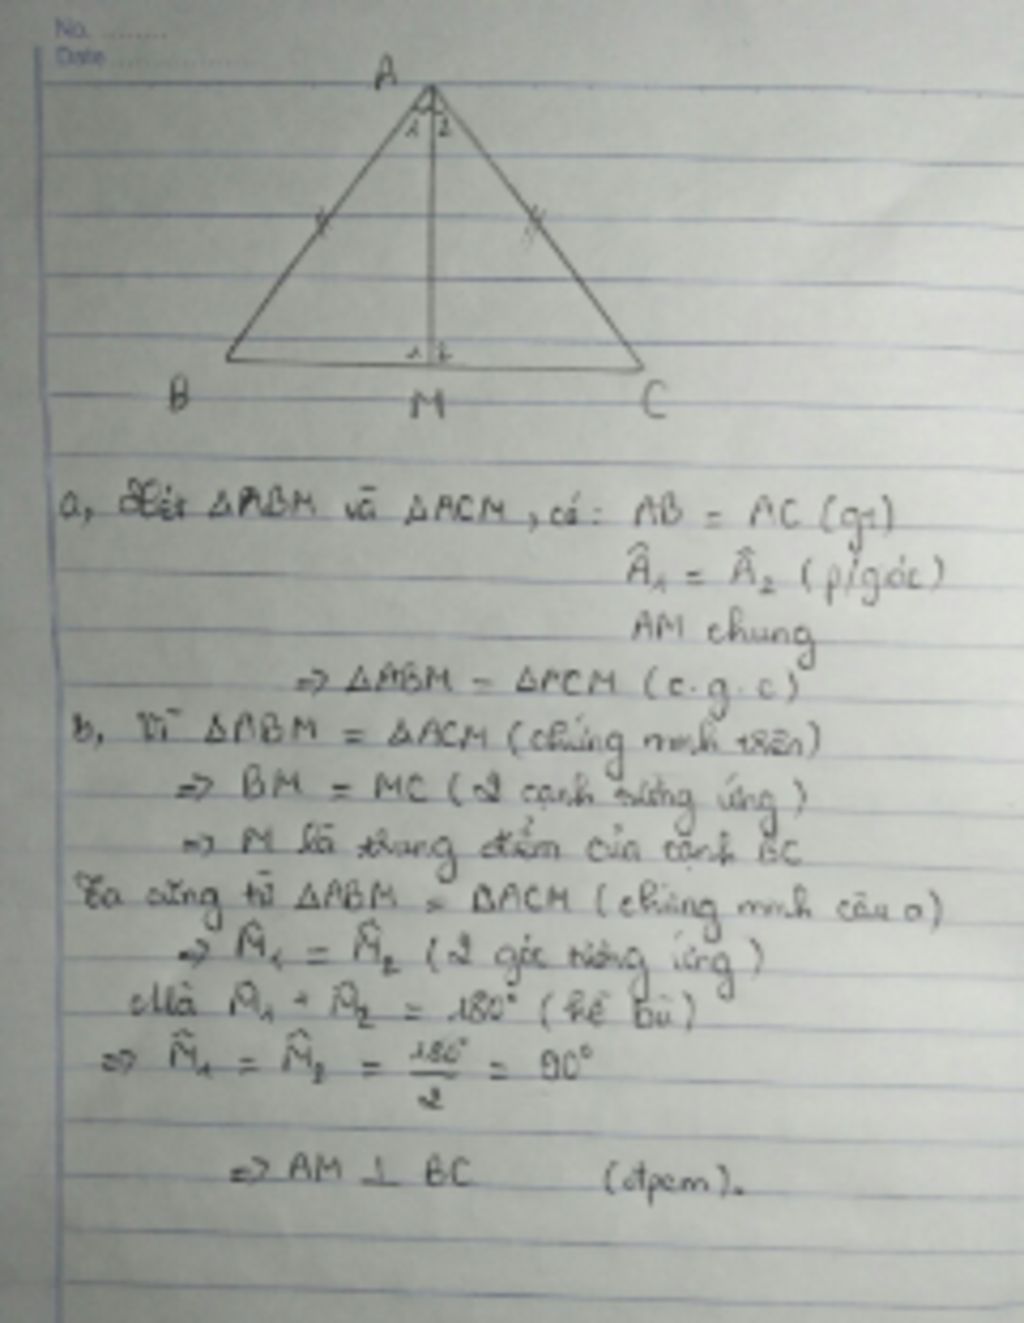 No. ........
Date ................
A
1 2
1 2
B M C
a, Xét ΔABM và ΔACM, có: AB = AC (gt)
Â₁ = Â₂ (p/góc)
AM chung
=> ΔABM = ΔACM (c.g.c)
b, Vì ΔABM = ΔACM (chứng minh trên)
=> BM = MC (2 cạnh tương ứng)
=> M là trung điểm của cạnh BC
Ta cũng từ ΔABM = ΔACM (chứng minh câu a)
=> M̂₁ = M̂₂ (2 góc tương ứng)
Mà M̂₁ + M̂₂ = 180° (kề bù)
=> M̂₁ = M̂₂ = 180°/2 = 90°
=> AM ⊥ BC (đpcm).